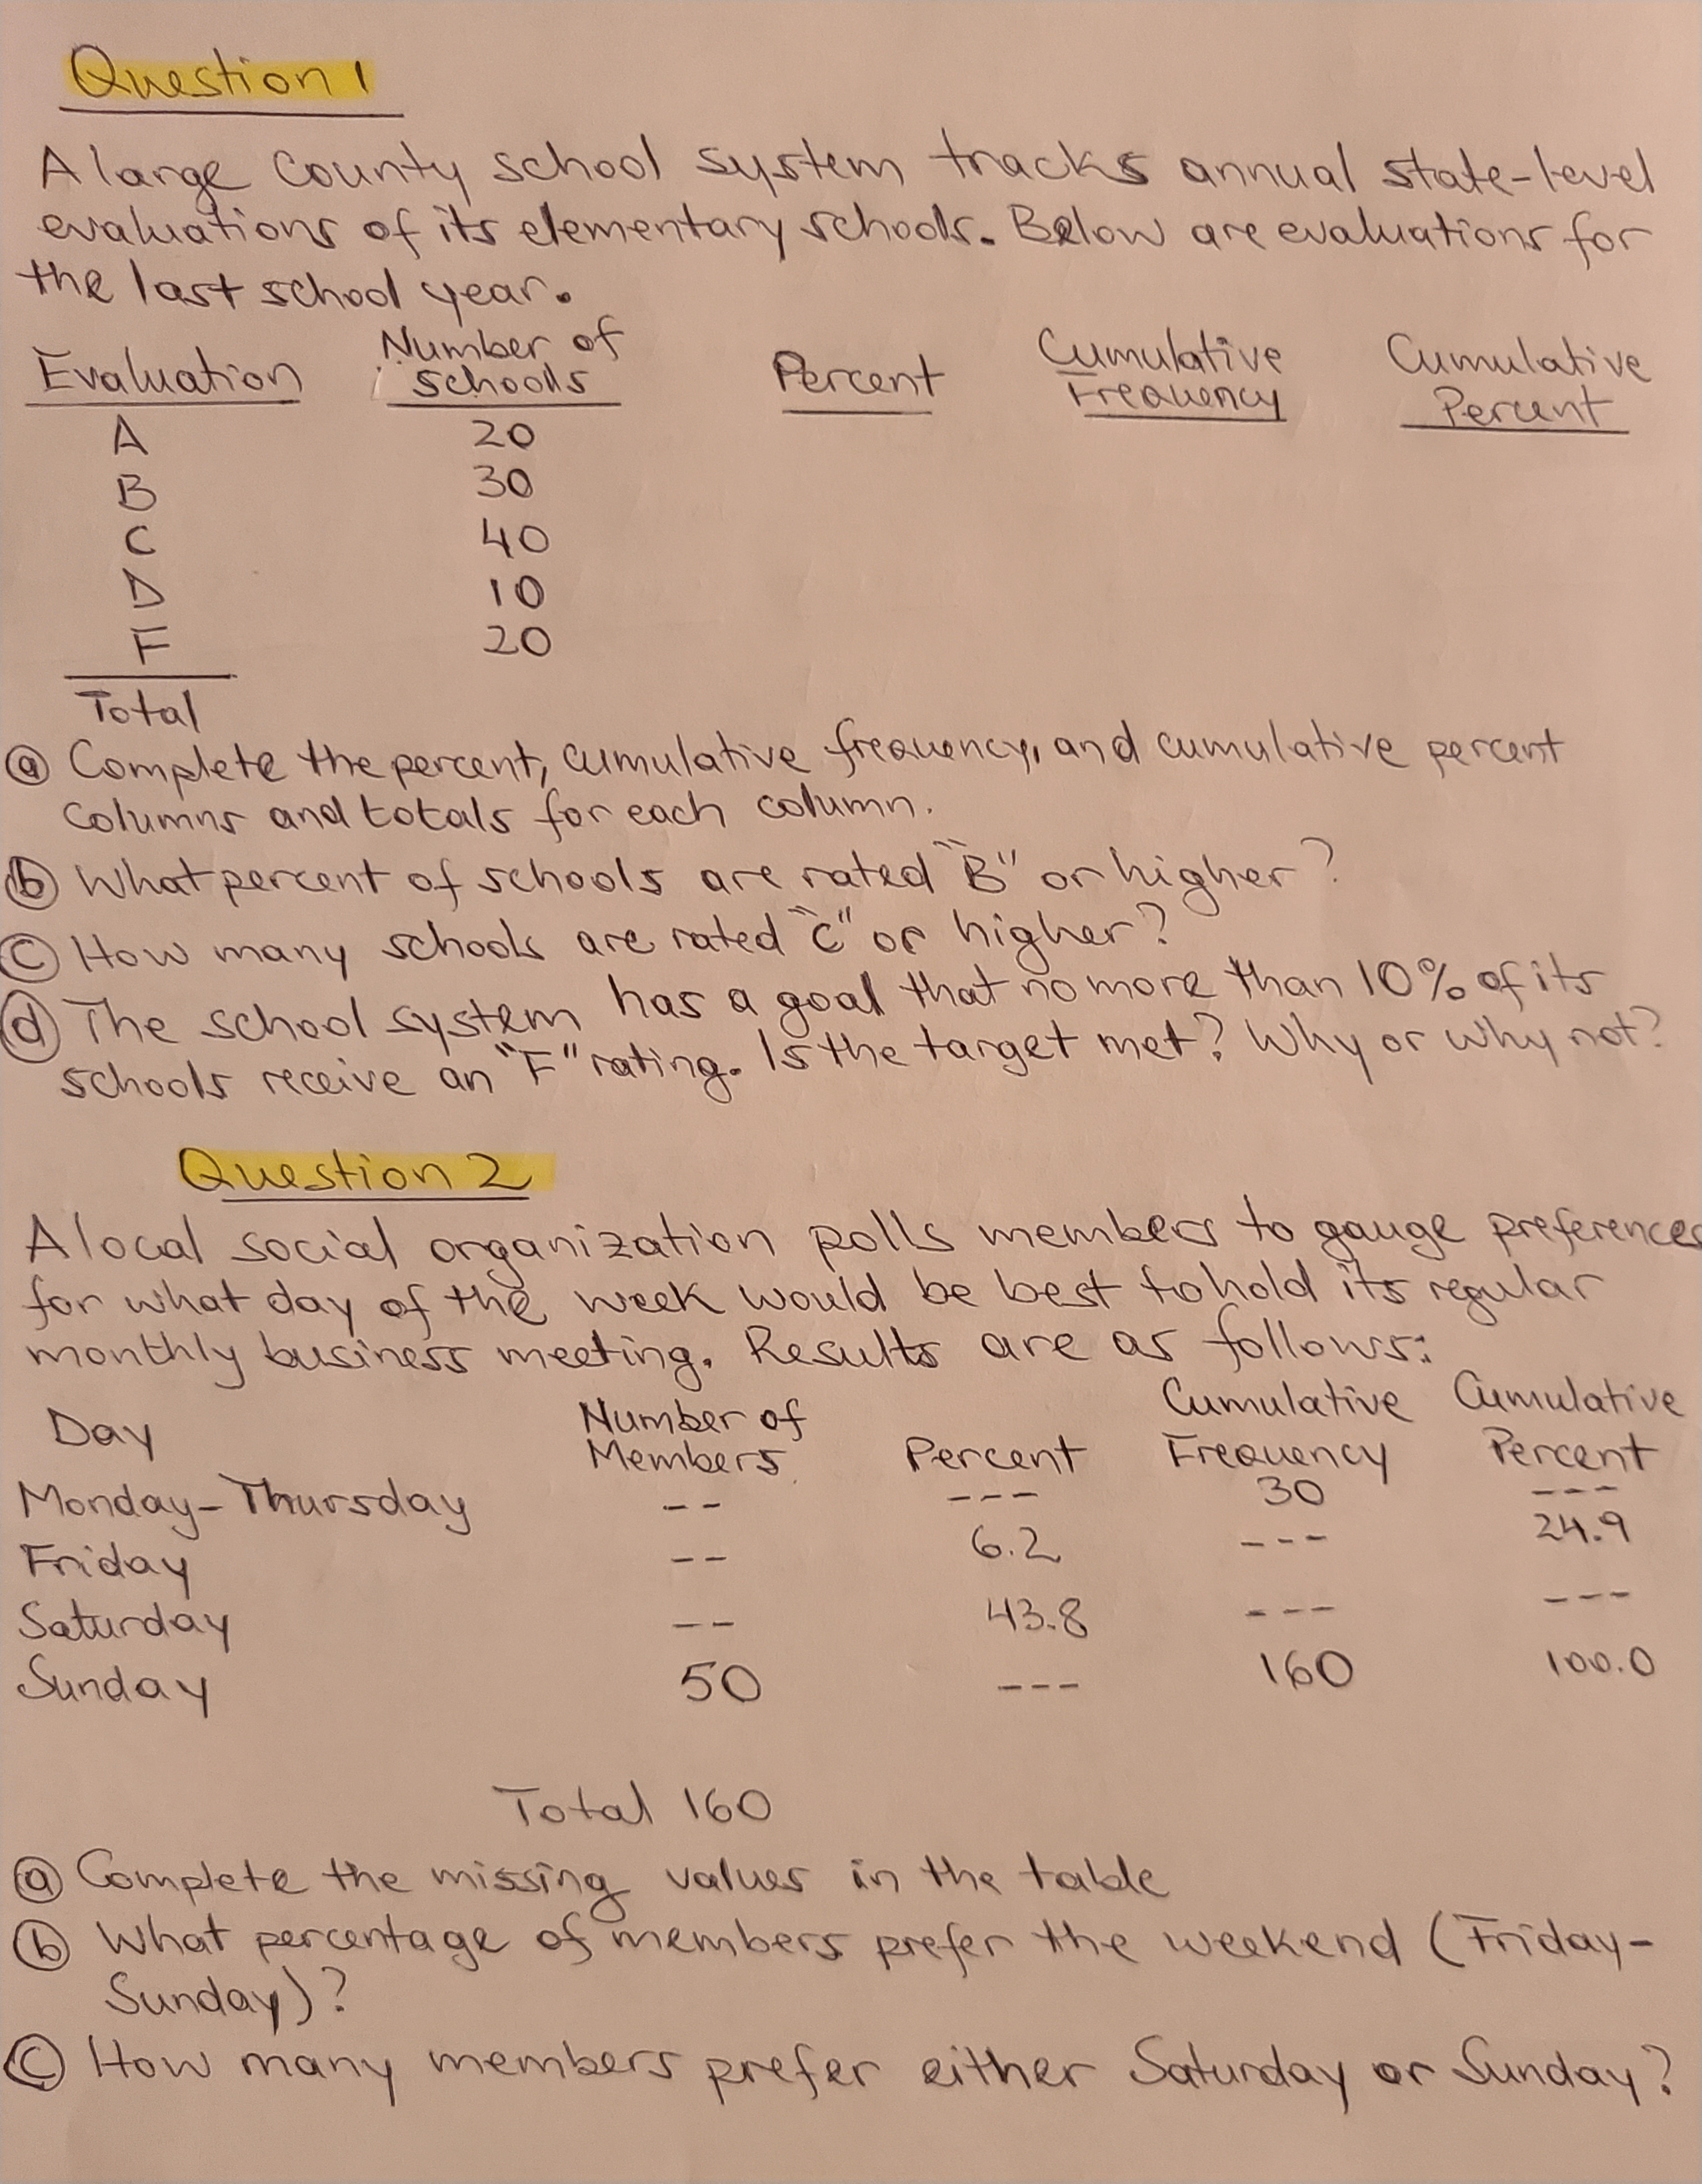 Question 1
A large County school system tracks annual state-level
evaluations of its elementary schools. Below are evaluations for
the last school year.
Evaluation Number of Schools Percent Cumulative Frequency Cumulative Percent
A 20
B 30
C 40
D 10
F 20
Total
(a) Complete the percent, cumulative frequency, and cumulative percent
columns and totals for each column.
(b) What percent of schools are rated "B" or higher?
(C) How many schools are rated "C" or higher?
(d) The school system has a goal that no more than 10% of its
schools receive an "F" rating. Is the target met? Why or why not?
Question 2
A local social organization polls members to gauge preferences
for what day of the week would be best to hold its regular
monthly business meeting. Results are as follows:
Day Number of Members Percent Cumulative Frequency Cumulative Percent
Monday-Thursday -- --- 30 ---
Friday -- 6.2 --- 24.9
Saturday -- 43.8 --- ---
Sunday 50 --- 160 100.0
Total 160
(a) Complete the missing values in the table
(b) What percentage of members prefer the weekend (Friday-
Sunday)?
(C) How many members prefer either Saturday or Sunday?